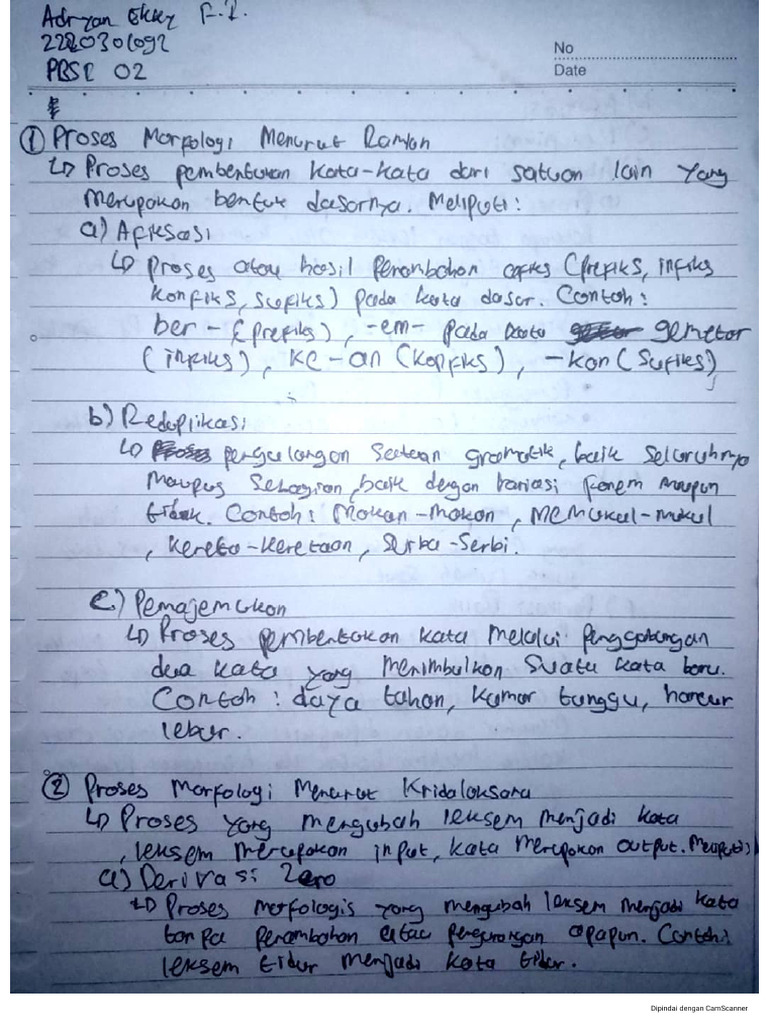 Adryan Ekky F. I.
2220301092
PBSI 02
No
Date
① Proses Morfologi Menurut Ramlan
↳ Proses pembentukan kata-kata dari satuan lain yang
merupakan bentuk dasarnya. Meliputi:
a) Afiksasi
↳ Proses atau hasil penambahan afiks (prefiks, infiks
konfiks, sufiks) pada kata dasar. Contoh:
ber- (prefiks), -em- pada kata gemetar
(infiks), ke-an (konfiks), -kan (sufiks)
b) Reduplikasi
↳ pengulangan satuan gramatik, baik seluruhnya
maupun sebagian, baik dengan variasi fonem maupun
tidak. Contoh: Makan-makan, memukul-mukul
, kereta-keretaan, Serba-Serbi.
c) Pemajemukan
↳ Proses pembentukan kata melalui penggabungan
dua kata yang menimbulkan suatu kata baru.
Contoh: daya tahan, kamar tunggu, hancur
lebur.
② Proses Morfologi Menurut Kridalaksana
↳ Proses yang mengubah leksem menjadi kata
, leksem merupakan input, kata merupakan output. Meliputi:
a) Derivasi Zero
↳ Proses morfologis yang mengubah leksem menjadi kata
tanpa penambahan atau pengurangan apapun. Contoh:
leksem tidur menjadi kata tidur.
Dipindai dengan CamScanner